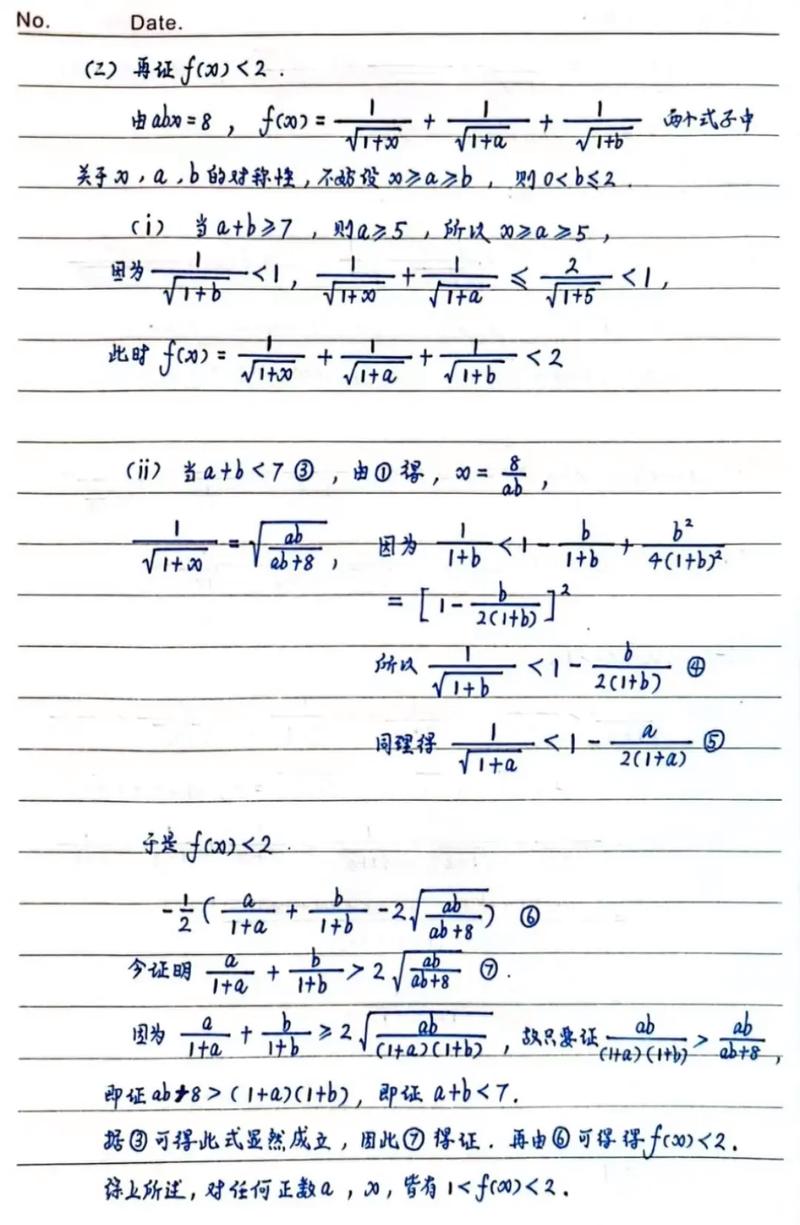 No. Date.
(2) 再证 f(x)<2.
由abx=8, f(x)=1/√(1+x) + 1/√(1+a) + 1/√(1+b) 两个式子中
关于x,a,b的对称性,不妨设 x≥a≥b, 则 0<b≤2.
(i) 当a+b≥7,则a≥5,所以 x≥a≥5,
因为 1/√(1+b) <1, 1/√(1+x) + 1/√(1+a) ≤ 2/√(1+5) <1,
此时 f(x)= 1/√(1+x) + 1/√(1+a) + 1/√(1+b) <2
(ii) 当a+b<7 ③,由①得, x= 8/ab,
1/√(1+x) = √(ab/(ab+8)), 因为 1/(1+b) < 1 - b/(1+b) + b²/(4(1+b)²)
= [1 - b/(2(1+b))]²
所以 1/√(1+b) < 1 - b/(2(1+b)) ④
同理得 1/√(1+a) < 1 - a/(2(1+a)) ⑤
于是 f(x)<2.
-1/2 (a/(1+a) + b/(1+b) - 2√(ab/(ab+8))) ⑥
今证明 a/(1+a) + b/(1+b) > 2√(ab/(ab+8)) ⑦.
因为 a/(1+a) + b/(1+b) ≥ 2√(ab/((1+a)(1+b))), 故只要证 ab/((1+a)(1+b)) > ab/(ab+8),
即证 ab+8>(1+a)(1+b), 即证 a+b<7.
据③可得此式显然成立,因此⑦得证. 再由⑥可得得f(x)<2.
综上所述,对任何正数a,x,皆有1<f(x)<2.